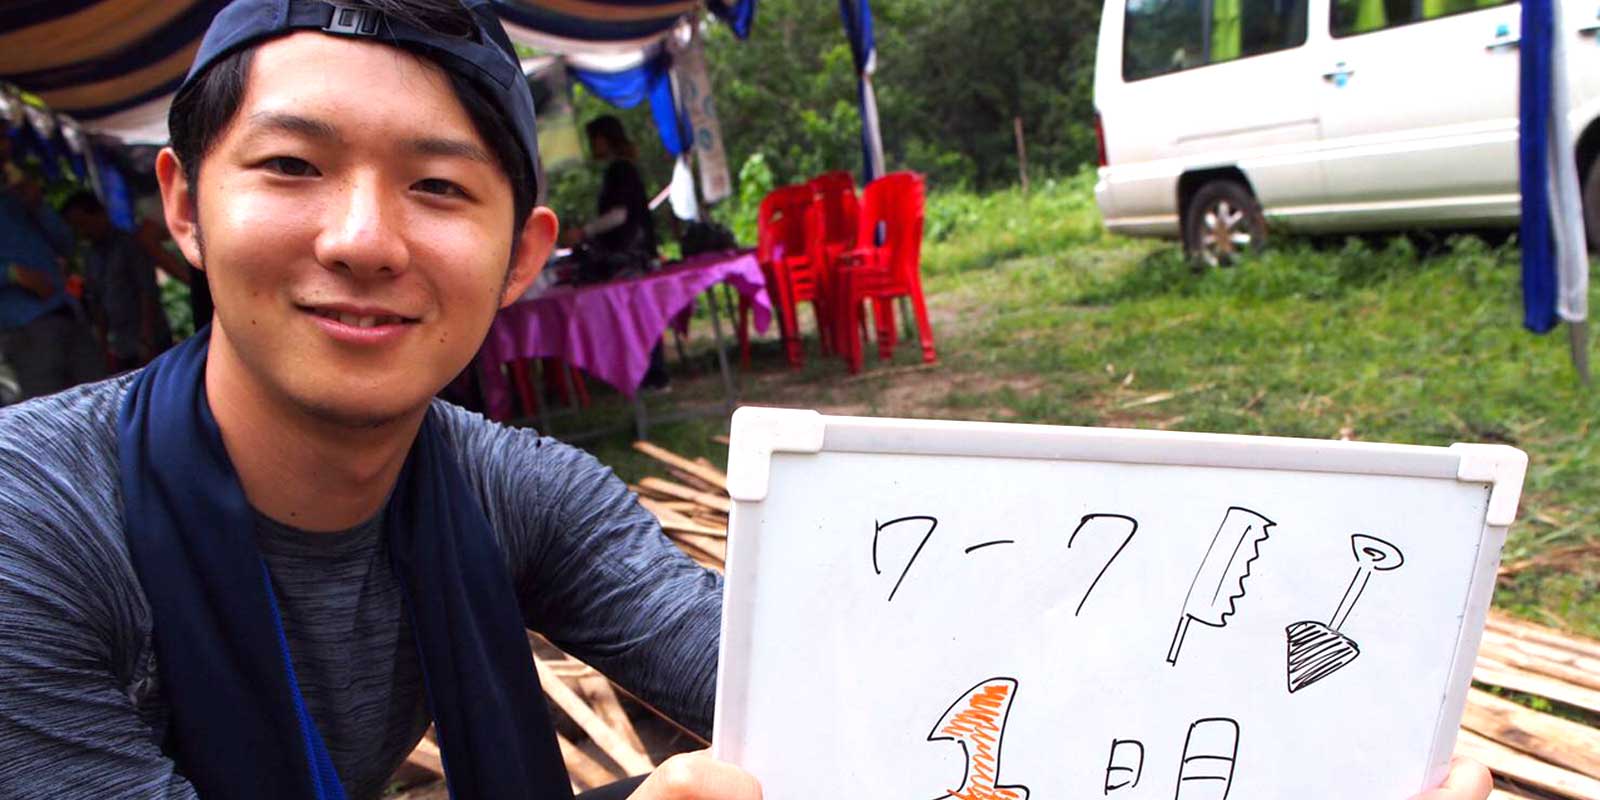 ワーク
1日目